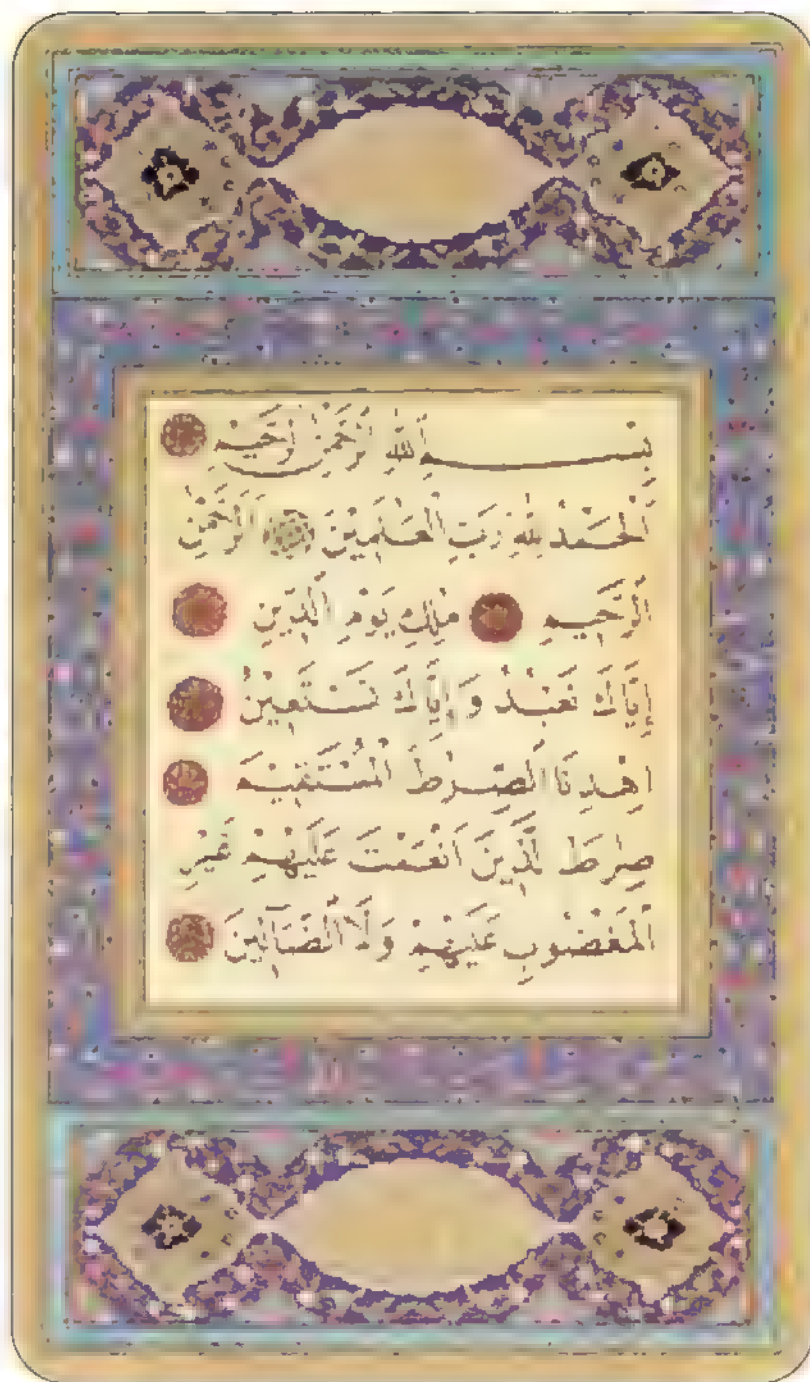 بِسْمِ اللّٰهِ الرَّحْمٰنِ الرَّحِيْمِ
اَلْحَمْدُ لِلّٰهِ رَبِّ الْعٰلَمِيْنَ اَلرَّحْمٰنِ
الرَّحِيْمِ مٰلِكِ يَوْمِ الدِّيْنِ
اِيَّاكَ نَعْبُدُ وَاِيَّاكَ نَسْتَعِيْنُ
اِهْدِنَا الصِّرٰطَ الْمُسْتَقِيْمَ
صِرٰطَ الَّذِيْنَ اَنْعَمْتَ عَلَيْهِمْ غَيْرِ
الْمَغْضُوْبِ عَلَيْهِمْ وَلَا الضَّآلِّيْنَ